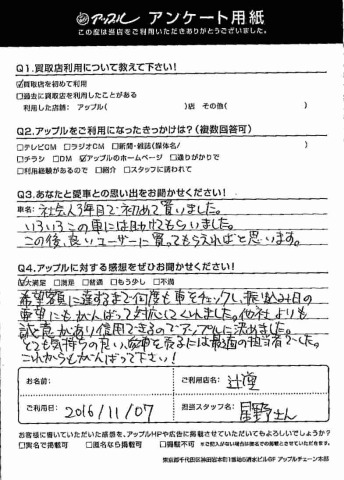 アップル アンケート用紙
この度は当店をご利用いただきありがとうございました。
Q1.買取店利用について教えて下さい!
☑買取店を初めて利用
□過去に買取店を利用したことがある
利用した店舗: アップル( )店 その他( )
Q2.アップルをご利用になったきっかけは?(複数回答可)
□テレビCM □ラジオCM □新聞・雑誌(媒体名/ )
□チラシ □DM ☑アップルのホームページ □通りがかりで
□利用経験があるので □紹介 □スタッフに誘われて
Q3.あなたと愛車との思い出をお聞かせください!
車名: 社会人3年目で初めて買いました。
いろいろこの車には助けてもらいました。
この後、良いユーザーに買ってもらえればと思います。
Q4.アップルに対する感想をぜひお聞かせください!
☑大満足 □満足 □普通 □もう少し □不満
希望額に達するまで何度も車をチェックし、振り込み日の
要望にもがんばって対応してくれました。他社よりも
誠意があり信用できるのでアップルに決めました。
とても気持ちの良い、愛車を売るには最適の担当者でした。
これからもがんばって下さい!
お名前:
ご利用店名: 辻堂
ご利用日: 2016/11/07
担当スタッフ名: 星野さん
お客様に書いていただいた感想を、アップルHPや広告に掲載させていただいてもよろしいでしょうか?
□実名で掲載可 □匿名なら掲載可 □掲載不可
東京都千代田区神田岩本町1番地5清水ビル6F アップルチェーン本部